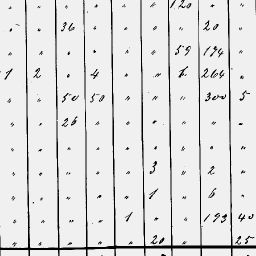 " " " " " " 120 " "
" " 36 " " " " 20 "
" " " " " " 59 194 "
1 2 " 4 " " 6 264 "
" " 50 50 " " " 300 5
" " 26 " " " " " "
" " " " " " " " "
" " " " " 3 " 2 "
" " " " " 1 " 6 "
" " " " 1 " " 193 40
" " " " " 20 " " 25